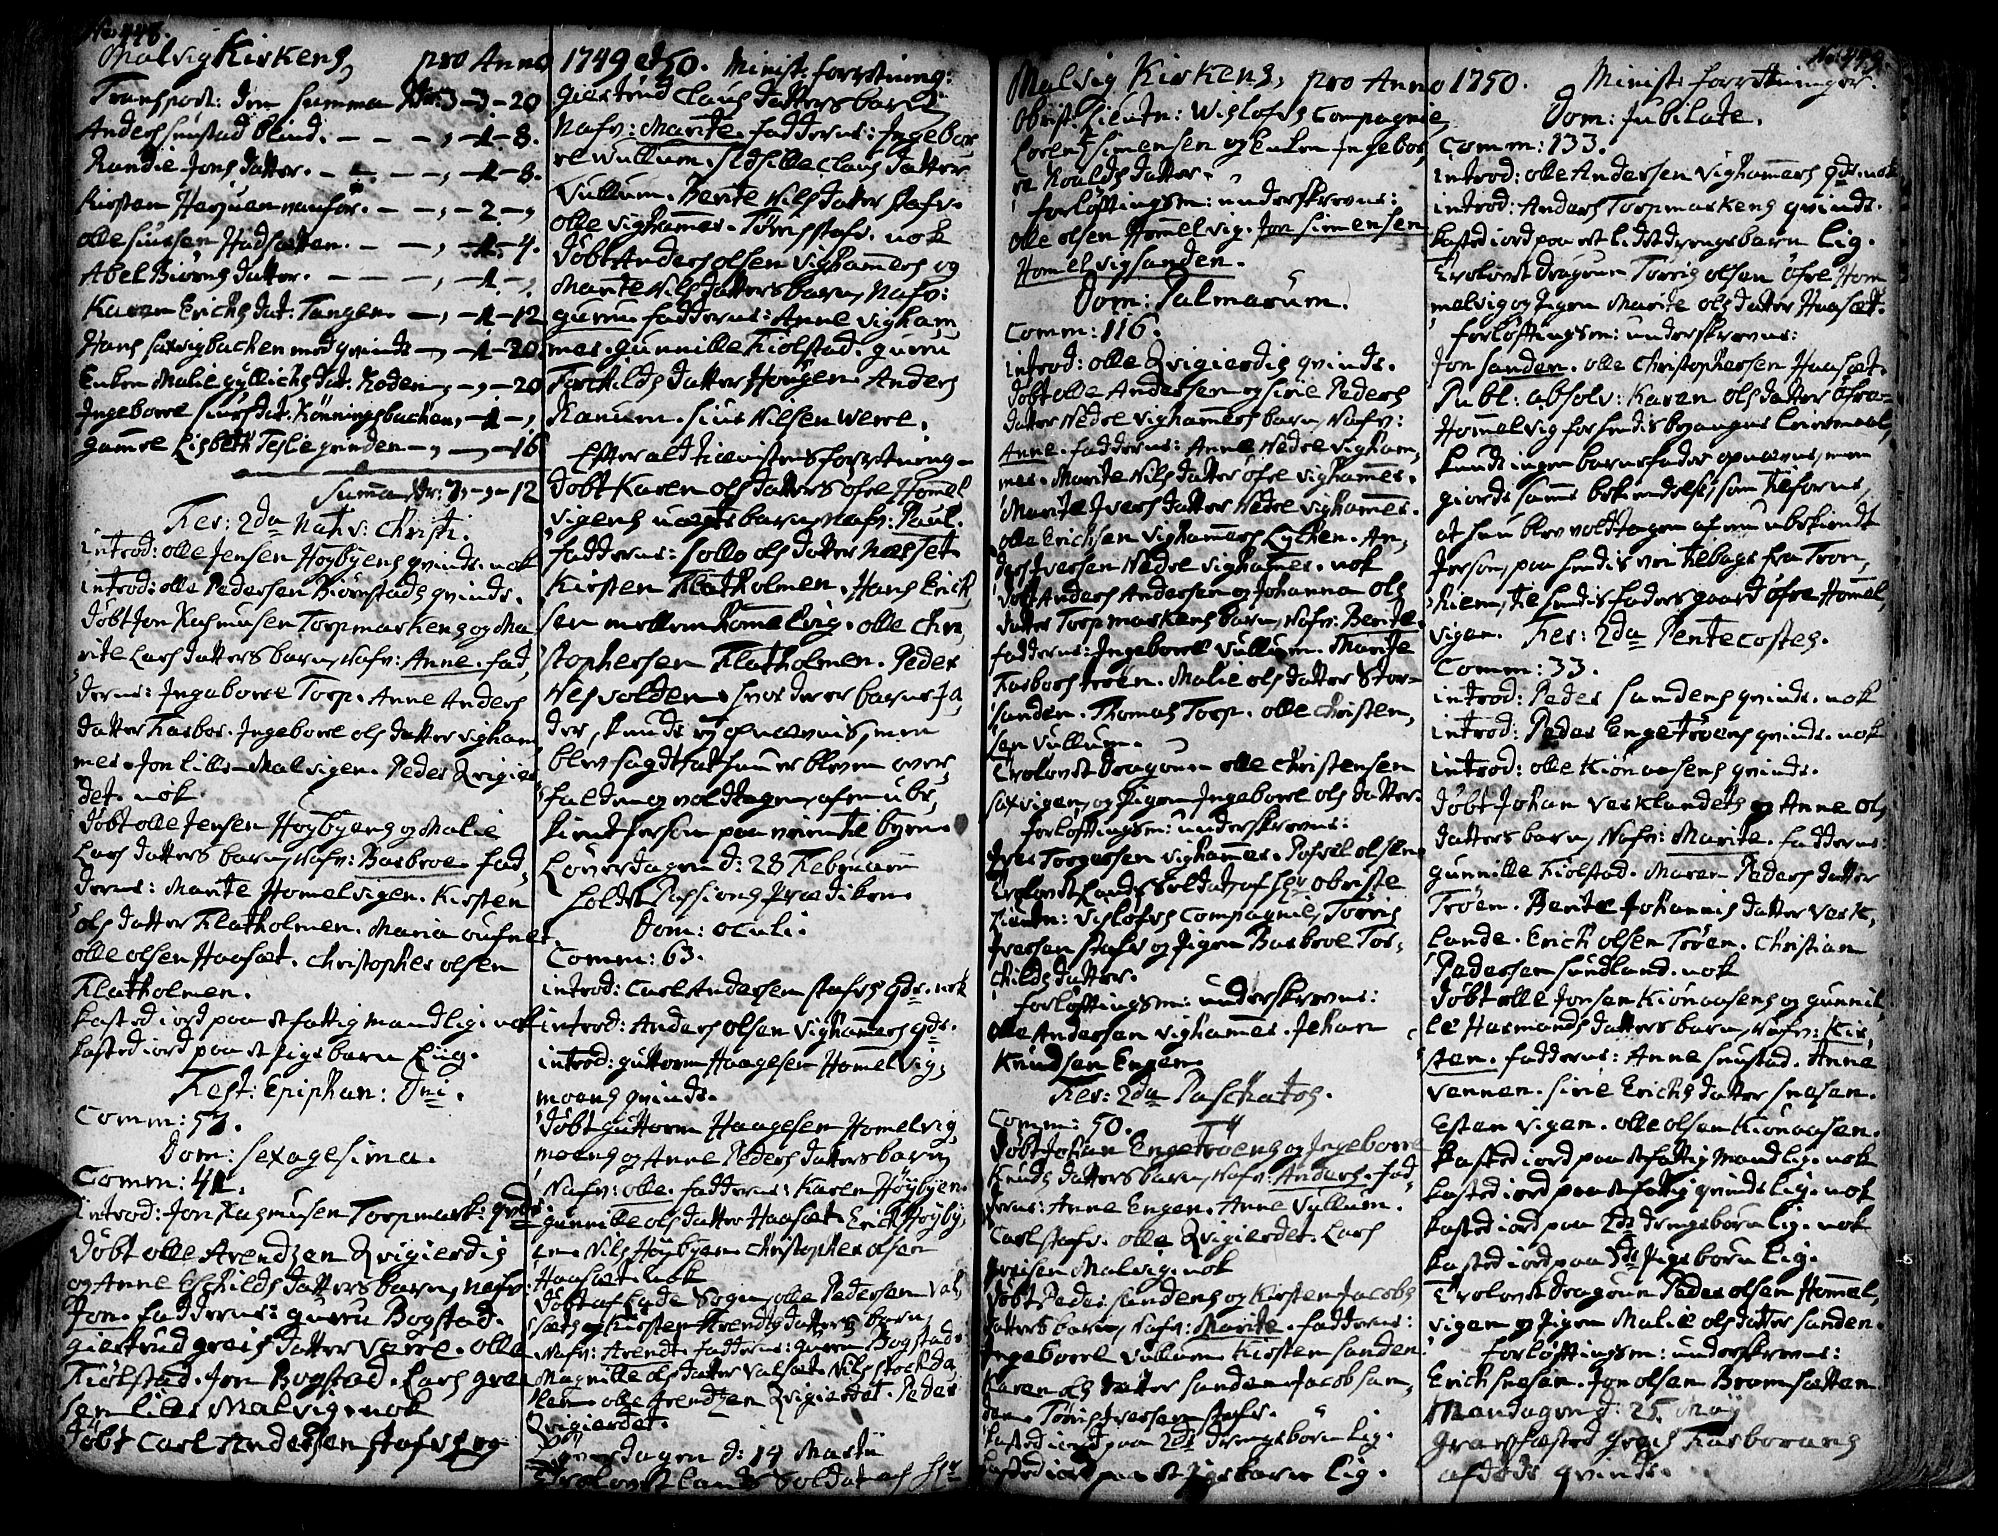 No. 448.
Malvig Kirkens, pro Anno 1749 et 50. Minist: forretning:
Transport: den Summa Rdr: 3 - 3 - 20
Anders Snustad blind. - - - , - 1 - 8.
Randie Jons datter. - - - , - 1 - 8.
Kirsten - - , - 2 - ,
olle Siursen Hadsætten. - - , - 1 - 4.
Abel Biörns datter. - - - , - 1 - ,
Karen Erichs dat: Tangen. - , - 1 - 12
Hans Saxvigbachen med qvinde - , - 1 - 20.
Enken Malie dat: - , - , - 20
Ingeborre Siurs dat: Rönningsbachen, - 1 - ,
gamle Lisbeth Teslie qvinden - , - , - 16
Summa Rdr: 7 - , - 12
Fer: 2da Nativ: Christi.
introd: olle Jensen Høybyens qvinde. nok
introd: olle Pedersen Biörnstads qvinde.
døbt Jon Rasmusen Torpmarkens og Ma,
rite Lars datters barn, Nafv: Anne. fad,
derne: Ingeborre Torp. Anne Anders
datter Karbor. Ingeborre ols datter Vigham
mer. Jon Lille-Malvigen. Peder Qvigier,
det. nok
døbt olle Jensen Høybyens og Malie
Lars datters barn, Nafv: Barbroe. fad,
derne: Marite Homelvigen. Kirsten
ols datter Flatholmen. Maria
olle olsen Haasæt. Christopher olsen
Flatholmen.
kasted iord paa et fattig mand lig. nok
kasted iord paa et Pige barn Liig.
Fest: Epiphan: Dni.
Comm: 57.
Dom: Sexagesima.
Comm: 41.
introd: Jon Rasmusen Torpmark: qvde
døbt olle Arendzen Qvigierdes
og Anne Eschilds datters barn, nafv:
Jon. fadderne: guru Bogstad.
giertrud greis datter Være. olle
Fiölstad. Jon Bogstad. Lars grei
sen Lille Malvig. nok
døbt Carl Andersen Stafs og
giertrud Claus datters barn
Nafv: Marite. fadderne: Ingebor,
re Vullum. Sidsille Claus datter
Vullum. Berite Nils datter Stafr.
olle Vighammer. Tören Stafr. nok
døbt Anders olsen Vighammers og
Marite Nils datters barn, Nafv:
guru. fadderne: Anne Vigham,
mer. gunnille Fiölstad. guru
Torchilds datter Haugen. Anders
Ranum. Siur Nilsen Were.
Efter all tienistens forretning -
døbt Karen ols datters öfre Hommel
vigens uægte barn, nafv: Paul.
fadderne: Solle ols datter Næsset.
Kirsten Flatholmen. Hans Erich,
sen mellem homelvig. olle Chri,
stophersen Flatholmen. Peder
Nesvolden. hvor der er barne fa,
der, kunde ey opnævnes, men
blev sagdt at hun er bleven over,
falden og voldtagen, af en ube,
kiendt Person paa veien til byen.
Løverdagen d: 28 Februarii
holdt Passions Prædiken.
Dom: oculi.
Comm: 63.
introd: Carl Andersen Stafrs qde. nok
introd: Anders olsen Vighammers qde.
introd: guttorm Haagesen Homelvig,
moens qvinde.
døbt guttorm Haagesen Homelvig
moens og Anne Peders datters barn
Nafv: olle. fadderne: Karen Høybyen.
gunnille ols datter Haasæt. Erich Høyby,
en. Nils Høybyen. Christopher olsen
Haasæt. nok
døbt af Lade Sogn, olle Pedersen Val,
sæts og Kirsten Arendts datters barn,
Nafv: Arendt. fadderne: guru Bogstad.
Magnille ols datter Valsæt. Nils Stochda,
len. olle Arendzen Qvigierdet. Peder
Qvigierdet.
Løverdagen d: 14 Martii
Trolovet Land Soldat af Hr
No. 449.
Malvig Kirkens, pro Anno 1750. Minist: forretninger.
Obrist: Lieutn: Wislofvs Compagnie,
Lorentz Simensen og Enken Ingebor,
re Roalds datter.
forløftingsm: underskrevne:
olle olsen Hommelvig. Jon Simensen
Homelvigsanden.
Dom: Palmarum.
Comm: 116.
introd: olle Qvigierdes qvinde.
døbt olle Andersen og Sirie Peders
datter Nedre Vighammers barn, Nafv:
Anne. fadderne: Anne Nedre Vigham,
mer. Marite Nils datter öfre Vighammer.
Marite Ivers datter Nedre Vighammer.
olle Erichsen Vighammers Lychen. An,
ders Iversen Nedre Vighammer. nok
døbt Anders Andersen og Johanna ols
datter Torpmarkens barn, Nafv: Berite.
fadderne: Ingeborre Vullum. Marite
Karbors trøen. Malie ols datter Stor-
sanden. Thomas Torp. olle Christen,
sen Vullum.
Trolovet Dragoun olle Christensen
Saxvigen, og Pigen Ingeborre ols datter.
forløftingsm: underskrevne:
Iver Torgersen Vighammer. Pofvel olsen
Trolovet Lands Soldat, af Hr Obriste
Lieutn: Vislofvs Compagnie, Torris
Iversen Stafr og Pigen Barbroe Tor,
childs datter.
forløftingsm: underskrevne:
olle Andersen Vighammer. Johan
Knudsen Engen.
Fer: 2da Paschatos.
Comm: 50.
døbt Johan Engetrøens og Ingeborre
Knuds datters barn, Nafv: Anders. fad,
derne: Anne Engen. Anne Vullum.
Carl Stafr. olle Qvigierdet. Lars
greisen Malvig. nok
døbt Peder Sandens og Kirsten Jacobs
datters barn, Nafv: Marite. fadderne:
Ingeborre Vullum. Kirsten Sanden.
Karen ols datter Sanden. Jacob San,
den. Törris Iversen Stafr.
kasted iord paa 2de drengebørn lig.
kasted iord paa et Pigebarn lig.
Dom: Jubilate.
Comm: 133.
introd: olle Andersen Vighammers qde. nok
introd: Anders Torpmarkens qvinde.
kasted iord paa et lidet drengebarn lig.
Trolovet Dragoun Torris olsen öfre Hom
melvig og Pigen Marite ols datter Haasæt.
forløftingsm: underskrevne:
Jon Sanden. olle Christophersen Haasæt.
Publ: absolv: Karen ols datter öfre-
Hommelvig for hendes begangne Leiermaal,
kunde ingen barnefader opnævne, men
giorde samme bekiendelse, som tilforne,
at hun blev voldtagen af en ubekiendt
Person, paa hendes vei tilbage fra Tron,
hiem, til hendes faders gaard öfre Hommel,
vigen. Fer: 2da Pentecostes.
Comm: 33.
introd: Peder Sandens qvinde. nok
introd: Peder Engetrøens qvinde. nok
introd: olle Kiönaasens qvinde.
døbt Johan Verklandets og Anne ols
datters barn, Nafv: Marite. fadderne:
gunnille Fiölstad. Maren Peders datter
Trøen. Berite Johannis datter Verk,
lande. Erich olsen Trøen. Christian
Pedersen Sundland. nok
døbt olle Jonsen Kiönaasens og gunnil,
le Hermands datters barn, Nafv: Kir,
sten. fadderne: Anne Snustad. Anne
Vennen. Sirie Erichs datter Snesen.
Esten Vigen. olle olsen Kiönaasen.
kasted iord paa et fattig mand lig. nok
kasted iord paa et fattig qvinde lig. nok
kasted iord paa 2de drengebørn lig. nok
kasted iord paa Pigebørn lig.
Trolovet Dragoun Peder olsen Hommel,
vigen og Pigen Malie ols datter Sanden.
forløftingsm: underskrevne:
Erich Snesen. Jon olsen Bromsætten.
Mandagen d: 25 Maij
Graefæsted greis Karborans
afdøde qvinde.